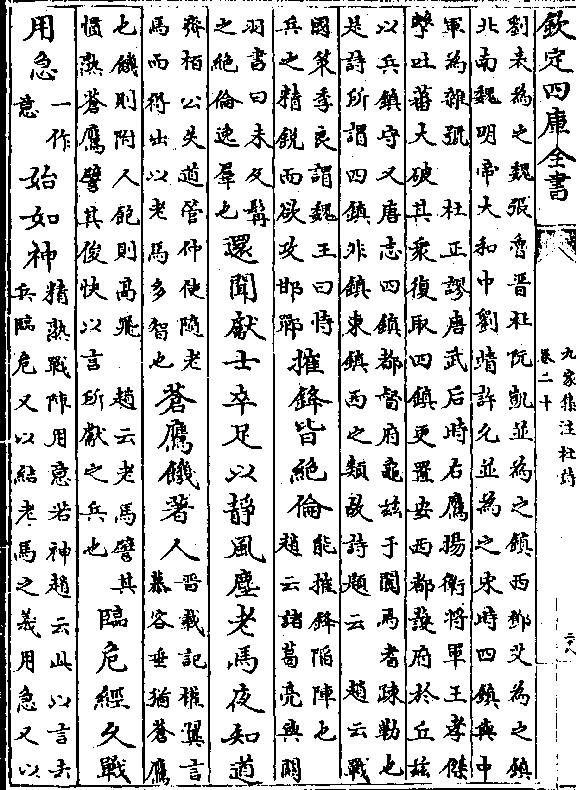 欽定四庫全書
九家集注杜詩
卷二十
二八
劉表為之魏張魯晉杜阮凱並為之鎮西鄧艾為之鎮
北南魏明帝大和中劉靖許允並為之東時四鎮與中
軍為雜號 杜正謬唐武后時右鷹揚衛將軍王孝傑
擊吐蕃大破其衆復取四鎮更置安西都護府於丘兹
以兵鎮守又唐志四鎮都督府龜兹于闐焉耆疎勒也
是詩所謂四鎮非鎮東鎮西之類故詩題云 趙云戰
國策季良謂魏王曰恃
兵之精銳而欲攻邯鄲
摧鋒皆絶倫
能摧鋒陷陣也
趙云諸葛亮與關
羽書曰未久髯
之絶倫逸羣也
還聞獻士卒足以靜風塵老馬夜知道
齊桓公失道管仲使隨老
馬而得出以老馬多智也
蒼鷹饑著人
晉載記權翼言
慕容垂猶蒼鷹
也饑則附人飽則高飛 趙云老馬譬其
慣熟蒼鷹譬其俊快以言所獻之兵也
臨危經久戰
用急
一作
意
始如神
精熟戰陣用意若神趙云此以言去
兵臨危又以結老馬之義用急又以